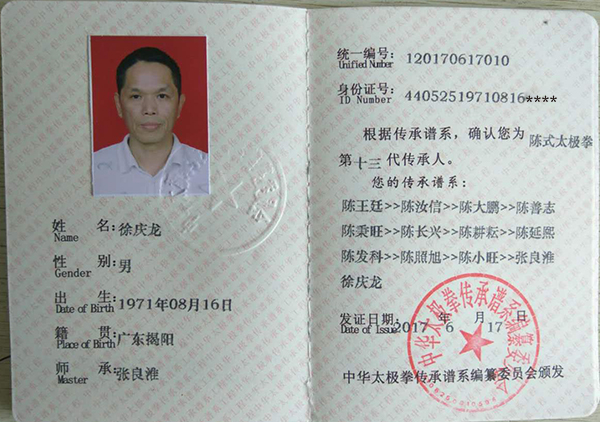 姓 名:徐庆龙
Name
性 别:男
Gender
出 生:1971年08月16日
Date of Birth
籍 贯:广东揭阳
Place of Birth
师 承:张良淮
Master
统一编号:120170617010
Unified Number
身份证号:44052519710816****
ID Number
根据传承谱系，确认您为陈式太极拳
第十三代传承人。
您的传承谱系:
陈王廷>>陈汝信>>陈大鹏>>陈善志
陈秉旺>>陈长兴>>陈耕耘>>陈延熙
陈发科>>陈照旭>>陈小旺>>张良淮
徐庆龙
发证日期:2017年6月17日
Date of Issue
中华太极拳传承谱系编纂委员会颁发
中华太极拳传承谱系编纂委员会